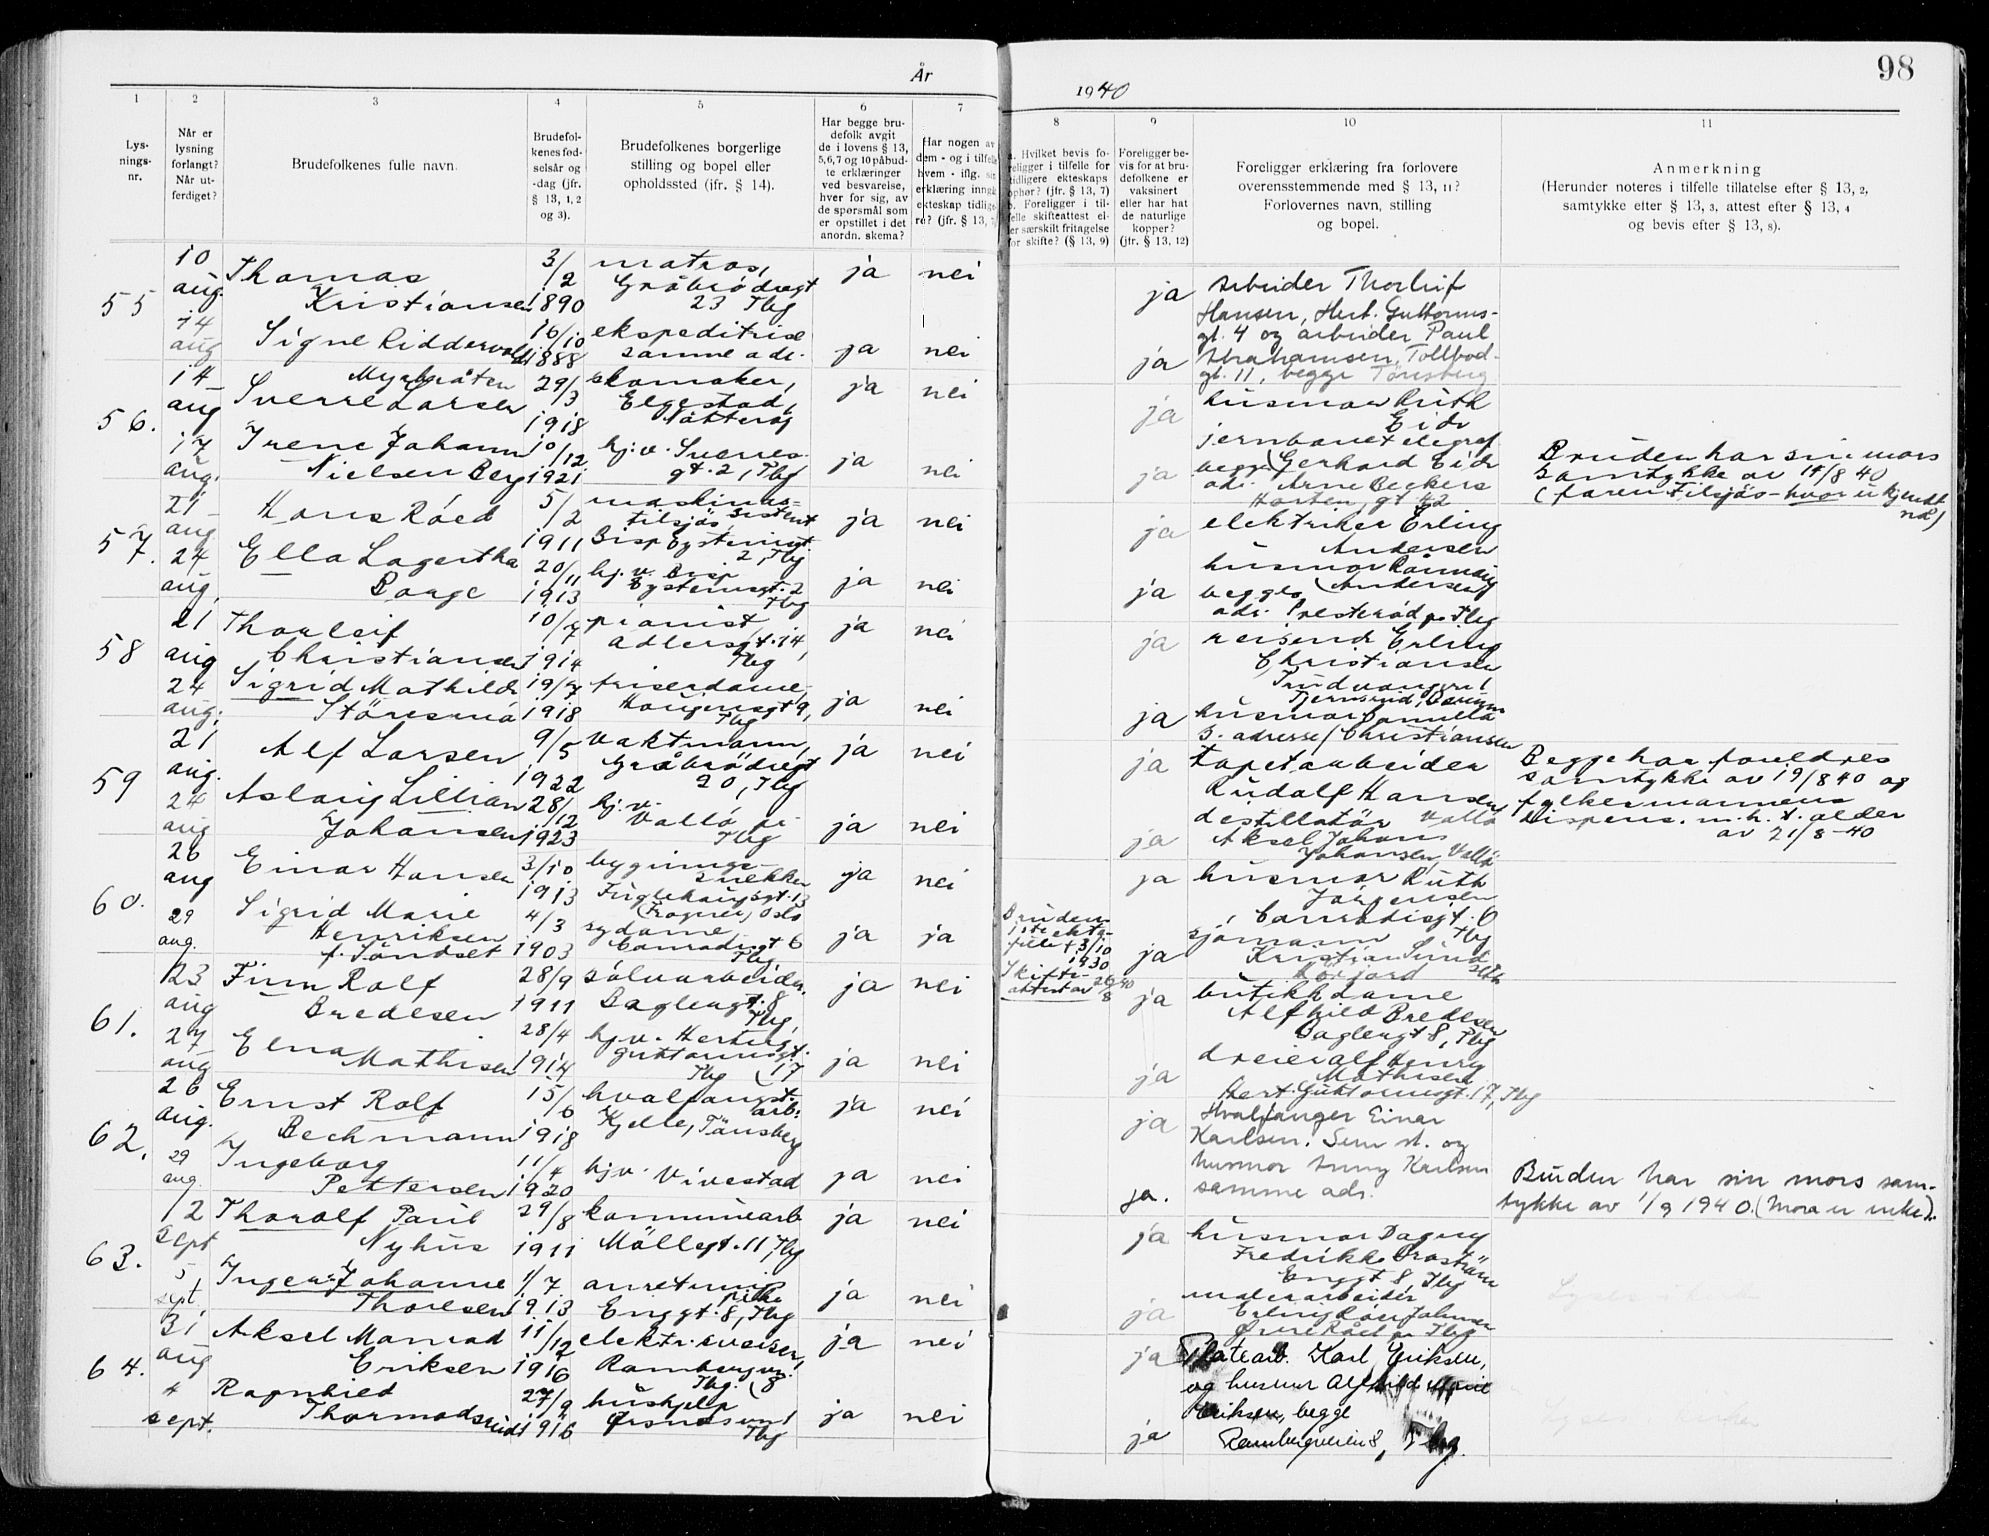 År
1940
98
1
2
3
4
5
6
7
8
9
10
11
Lys-
nings-
nr.
Når er
lysning
forlangt?
Når ut-
ferdiget?
Brudefolkenes fulle navn.
Brudefol-
kenes fød-
selsår og
-dag (jfr.
§ 13, 1, 2
og 3).
Brudefolkenes borgerlige
stilling og bopel eller
opholdssted (jfr. § 14).
Har begge bru-
defolk avgit
de i lovens § 13,
5,6,7 og 10 påbud-
te erklæringer
ved besvarelse,
hver for sig, av
de spørsmål som
er opstillet i det
anordn. skema?
Har nogen av
dem - og i tilfelle
hvem - iflg. sin
erklæring inngå
ekteskap tidlige
re? (jfr. § 13, 7)
a. Hvilket bevis fo-
religger i tilfelle for
tidligere ekteskaps
ophør? (jfr. § 13, 7)
b. Foreligger i til-
felle skifteattest el-
ler særskilt fritagelse
for skifte? (§ 13, 9)
Foreligger be-
vis for at bru-
defolkene er
vaksinert
eller har hat
de naturlige
kopper?
(jfr. § 13, 12)
Foreligger erklæring fra forlovere
overensstemmende med § 13, 11?
Forlovernes navn, stilling
og bopel.
Anmerkning
(Herunder noteres i tilfelle tillatelse efter § 13, 2,
samtykke efter § 13, 3, attest efter § 13, 4
og bevis efter § 13, 8).
55
10 aug.
Thomas
Kristiansen
3/2
1890
matros,
Gråbrødregt
23 Tbg
ja nei
ja
14 aug
Signe Riddervold
16/10
1888
ekspeditrise
samme adr.
ja nei
ja
Arbeider Thorleif
Hansen, Hert. Guttorms-
gt. 4 og arbeider Paul
Abrahamsen, Tollbod-
gt. 11, begge Tönsberg
56.
14 aug
Myrbråten
Sverre Larsen
29/3
1918
skomaker,
Elgestad,
Nötteröy
ja nei
ja
17 aug.
Irene Johann
Nielsen Berg
10/12
1921
hj.v. Sverres-
gt. 2, Tbg
ja nei
ja
husmor Ruth
Eide
jernbanetelegraf.
begge Gerhard Eide
adr. Arne Beckers
gt 42
Horten,
Bruden har sin mors
samtykke av 14/8 40
(faren tilsjøs - hvor er ukjendt
nå)
57.
21 aug
Hans Röed
5/2
1911
maskinas-
sistent
tilsjös,
Bisp Eysteinsgt.
2, Tbg
ja nei
ja
24 aug.
Ella Lagertha
Borge
20/11
1913
hj.v. Bisp
Eysteinsgt. 2
Tbg
ja nei
ja
elektriker Erling
Andersen
husmor Rannveig
begges Andersen
adr. Presteröd pr Tbg
58
21 aug
Thorleif
Christiansen
10/7
1914
pianist,
Adlersgt. 14,
Tbg
ja nei
ja
24 aug.
Sigrid Mathilde
Störesmå
19/7
1918
friserdame,
Haugensgt 9,
Tbg
ja nei
ja
reisende Erling
Christiansen
Tjernsrud, Bærum
husmor
s. adresse / Christiansen
59
21 aug.
Alf Larsen
9/5
1922
vaktmann,
Gråbrödregt
20, Tbg
ja nei
ja
24 aug
Aslaug Lillian
Johansen
28/12
1923
hj.v.
Vallö pr
Tbg
ja nei
ja
tapetarbeider
Rudolf Hansen
destillatör Vallö
Aksel Johans
Johansen, Vallö
Begge har foreldres
samtykke av 19/8 40 og
fylkesmannens
dispens. m.h.t. alder
av 21/8-40
60.
26 aug
Einar Hansen
3/10
1913
bygnings-
snekker
Fuglehaugsgt. 13
(Frogner) Oslo
ja nei
ja
29 aug.
Sigrid Marie
Henriksen
f. Sundset
4/3
1903
sydame
Conradisgt 6
Tbg
ja ja
Brudens
1ste ekte-
felle † 3/10
1930
Skifte-
attest av 26/8 40
ja
husmor Ruth
Jörgensen
Conradisgt. 6
Tbg
sjömann
Kristian Sund
seth
61.
23 aug
Finn Rolf
Bredesen
28/9
1911
sölvarbeider.
Baglergt. 8
Tbg,
ja nei
ja
27 aug
Elna Mathisen
28/4
1914
hj.v. Hertug
Guttormsgt.
Tbg 17
ja nei
ja
butikkdame
Alfhild Bredesen
Baglergt 8, Tbg
dreier Alf Henry
Mathisen
Hert. Guttormsgt. 17, Tbg
62.
26 aug.
Ernst Rolf
Bechmann
15/6
1918
hvalfangst-
arb.
Kjelle, Tönsberg
ja nei
ja
29 aug.
Ingeborg
Pettersen
11/4
1920
hjv. Vivestad
ja nei
ja.
Hvalfanger Einar
Karlsen. Sem st. og
husmor Anny Karlsen
samme adr.
Bruden har sin mors sam-
tykke av 1/9 1940. (Mora er enke).
63.
12 sept
Thorolf Paul
Nyhus
29/8
1911
kommunearb
Möllegt. 11 Tbg
ja nei
ja
5, sept,
Inger Johanne
Thoresen
1/7
1913
anretnings
pike
Enggt. 8, Tbg
ja nei
ja
husmor Dagny
Fredrikke Braström
Enggt 8, Tbg
murerarbeider
Erling Roer Johnsen
Örsne Råel pr Tbg
64.
31 aug
Aksel Monrad
Eriksen
11/12
1916
elektr. sveiser,
Rambergvn.
Tbg. 8
ja nei
ja
4 sept.
Ragnhild
Thormodsrud
27/9
1916
hushjelp
Örsnesvn 1
Tbg
ja nei
ja
Platearb. Karl Eriksen,
og husmor Alfhild Marie
Eriksen, begge
Rambergveien 8, Tbg.